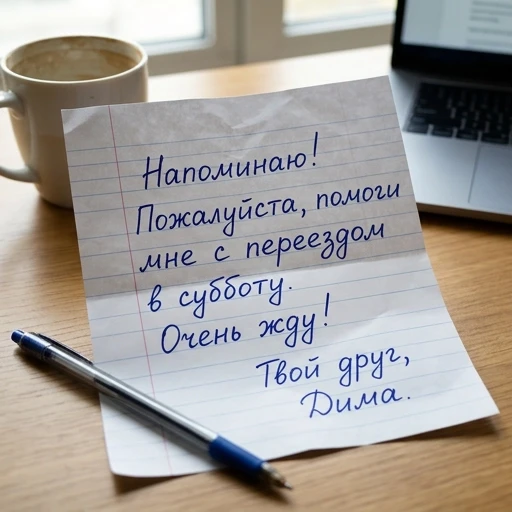 Напоминаю!
Пожалуйста, помоги
мне с переездом
в субботу.
Очень жду!
Твой друг,
Дима.